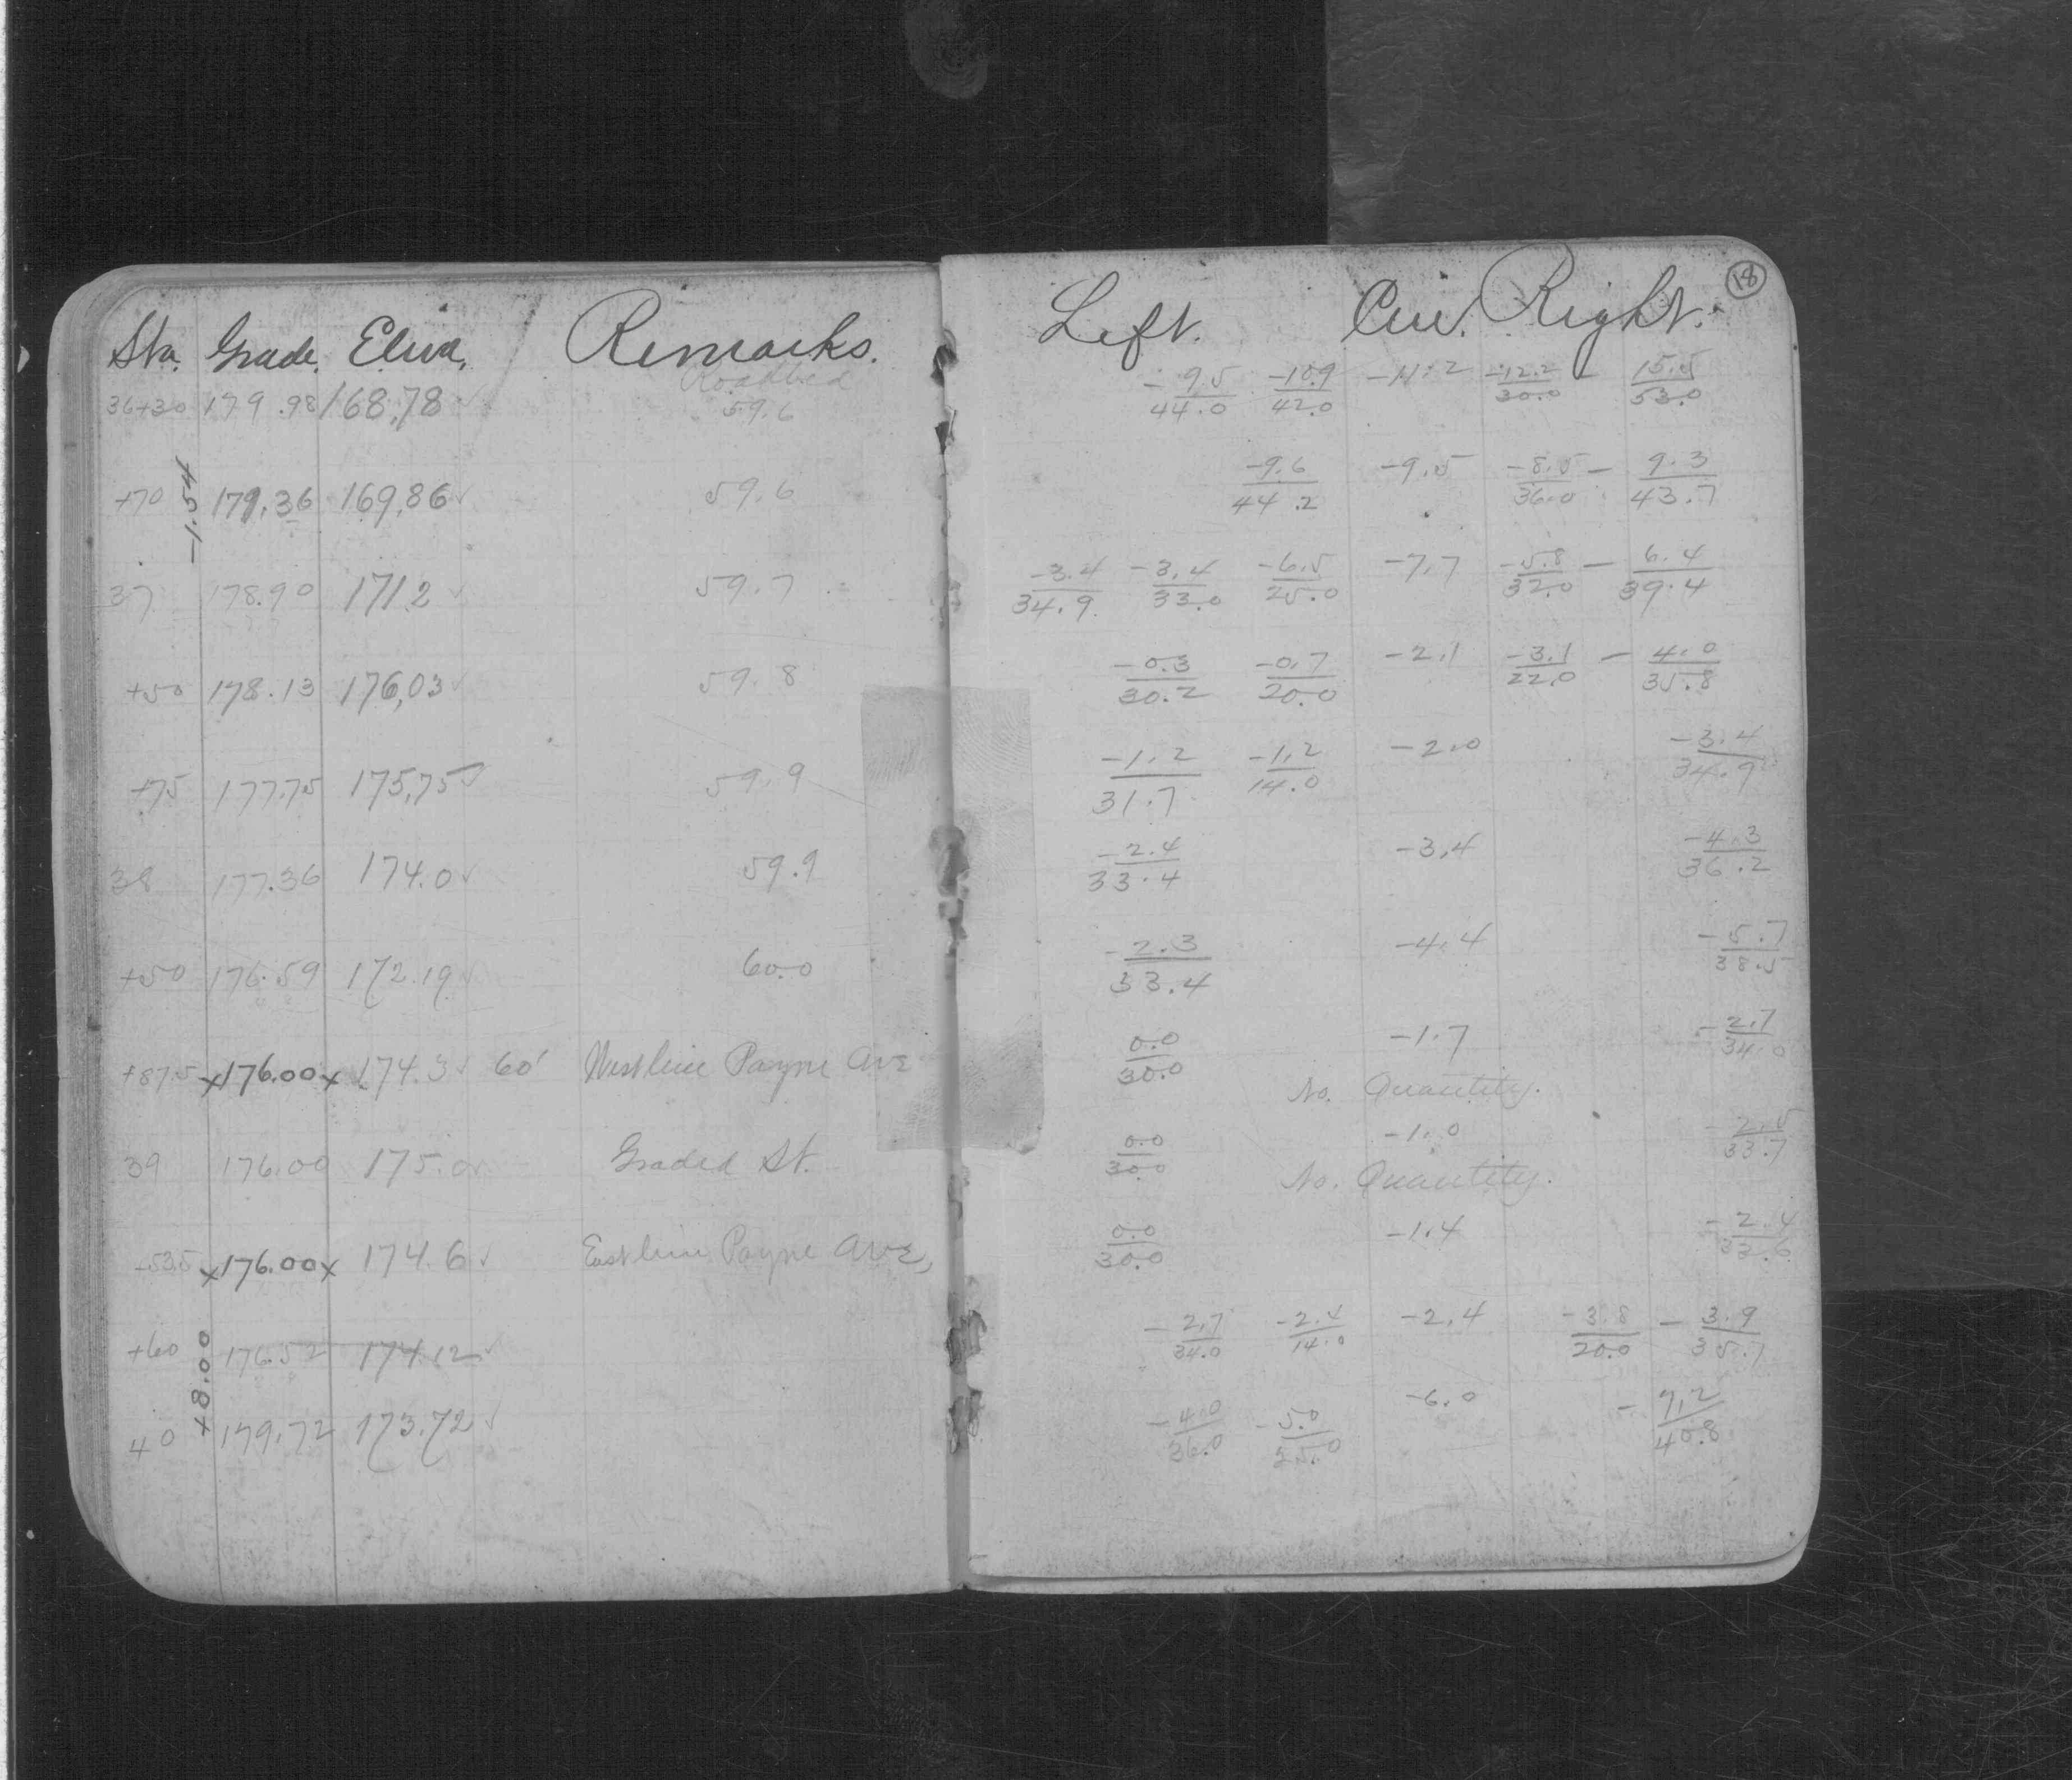 Sta. Grade. Eleva. Remarks. Left. Cen. Right. 18
Roadbed
36+30 179.98 168.78 ✓ 59.6 -9.5/44.0 -10.9/42.0 -11.2 -12.2/30.0 - 15.5/53.0
-1.54
+70 179.36 169.86 ✓ 59.6 -9.6/44.2 -9.5 -8.5/36.0 - 9.3/43.7
37 178.90 171.2 ✓ 59.7 -3.4/34.9 -3.4/33.0 -6.5/25.0 -7.7 -5.8/32.0 - 6.4/39.4
+50 178.13 176.03 ✓ 59.8 -0.3/30.2 -0.7/20.0 -2.1 -3.1/22.0 - 4.0/35.8
+75 177.75 175.75 ✓ 59.9 -1.2/31.7 -1.2/14.0 -2.0 -3.4/34.9
38 177.36 174.0 ✓ 59.9 -2.4/33.4 -3.4 -4.3/36.2
+50 176.59 172.19 ✓ 60.0 -2.3/33.4 -4.4 -5.7/38.5
+87.5 x176.00x 174.3 ✓ 60' West line Payne Ave 0.0/30.0 -1.7 -2.7/34.0
No. Quantity.
39 176.00 175.0 ✓ Graded St. 0.0/30.0 -1.0 -2.5/33.7
No. Quantity.
+53.5 x176.00x 174.6 ✓ East line Payne Ave, 0.0/30.0 -1.4 -2.4/33.6
+60 176.52 174.12 ✓ -2.7/34.0 -2.4/14.0 -2.4 -3.8/20.0 - 3.9/35.1
+8.00
40 179.72 173.72 ✓ -4.0/36.0 -5.0/25.0 -6.0 - 7.2/40.8